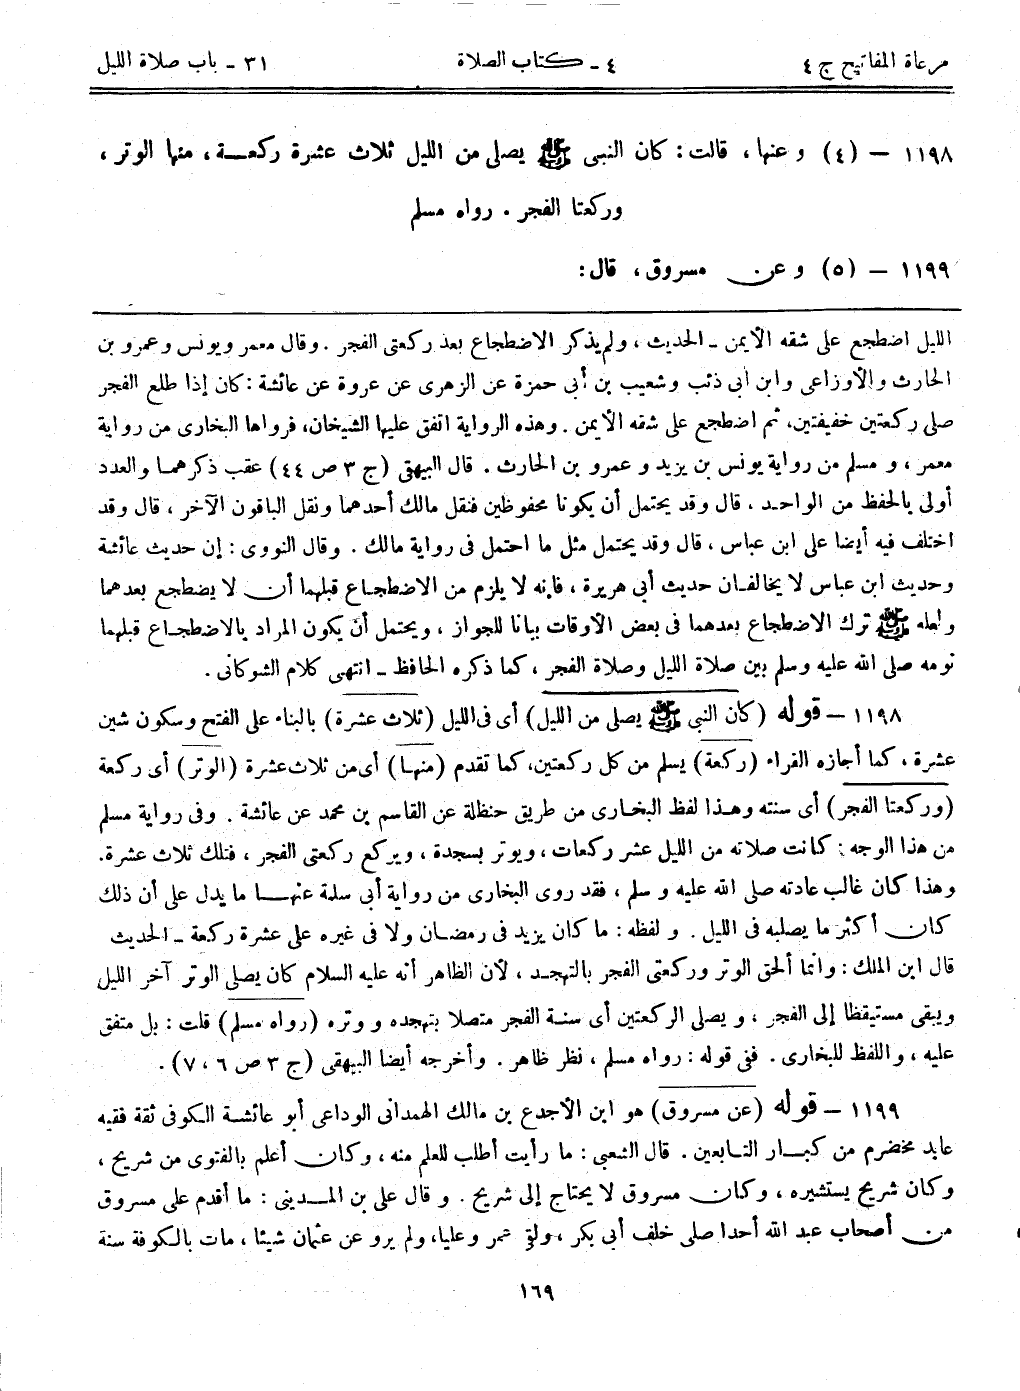 مرعاة المفاتيح ج ٤
٤ ـ كتاب الصلاة
٣١ ـ باب صلاة الليل
١١٩٨ – (٤) وعنها، قالت: كان النبى ﷺ يصلى من الليل ثلاث عشرة ركعة، منها الوتر،
وركعتا الفجر. رواه مسلم
١١٩٩ – (٥) وعن مسروق، قال:
الليل اضطجع على شقه الأيمن ـ الحديث، ولم يذكر الاضطجاع بعد ركعتى الفجر. وقال معمر ويونس وعمرو بن
الحارث والأوزاعى وابن أبى ذئب وشعيب بن أبى حمزة عن الزهرى عن عروة عن عائشة: كان إذا طلع الفجر
صلى ركعتين خفيفتين، ثم اضطجع على شقه الأيمن. وهذه الرواية اتفق عليها الشيخان، فرواها البخارى من رواية
معمر، و مسلم من رواية يونس بن يزيد و عمرو بن الحارث. قال البيهقى (ج ٣ ص ٤٤) عقب ذكرهما والعدد
أولى بالحفظ من الواحد، قال وقد يحتمل أن يكونا محفوظين فنقل مالك أحدهما ونقل الباقون الآخر، قال وقد
اختلف فيه أيضا على ابن عباس، قال وقد يحتمل مثل ما احتمل فى رواية مالك. وقال النووى: إن حديث عائشة
وحديث ابن عباس لا يخالفان حديث أبى هريرة، فإنه لا يلزم من الاضطجاع قبلهما أن لا يضطجع بعدهما
ولعله ﷺ ترك الاضطجاع بعدهما فى بعض الأوقات بيانا للجواز، ويحتمل أن يكون المراد بالاضطجاع قبلهما
نومه صلى الله عليه وسلم بين صلاة الليل وصلاة الفجر، كما ذكره الحافظ ـ انتهى كلام الشوكانى.
١١٩٨ – قوله (كان النبى ﷺ يصلى من الليل) أى فى الليل (ثلاث عشرة) بالبناء على الفتح وسكون شين
عشرة، كما أجازه الفراء (ركعة) يسلم من كل ركعتين، كما تقدم (منها) أى من ثلاث عشرة (الوتر) أى ركعة
(وركعتا الفجر) أى سنته وهذا لفظ البخارى من طريق حنظلة عن القاسم بن محمد عن عائشة. وفى رواية مسلم
من هذا الوجه: كانت صلاته من الليل عشر ركعات، ويوتر بسجدة، ويركع ركعتى الفجر، فتلك ثلاث عشرة.
وهذا كان غالب عادته صلى الله عليه و سلم، فقد روى البخارى من رواية أبى سلمة عنها ما يدل على أن ذلك
كان أكثر ما يصليه فى الليل. و لفظه: ما كان يزيد فى رمضان ولا فى غيره على عشرة ركعة ـ الحديث
قال ابن الملك: وانما ألحق الوتر وركعتى الفجر بالتهجد، لأن الظاهر أنه عليه السلام كان يصلى الوتر آخر الليل
ويبقى مستيقظا إلى الفجر، و يصلى الركعتين أى سنة الفجر متصلا بتهجده و وتره (رواه مسلم) قلت: بل متفق
عليه، واللفظ للبخارى. ففى قوله: رواه مسلم، نظر ظاهر. وأخرجه أيضا البيهقى (ج ٣ ص ٦، ٧).
١١٩٩ – قوله (عن مسروق) هو ابن الأجدع بن مالك الهمدانى الوداعى أبو عائشة الكوفى ثقة فقيه
عابد مخضرم من كبار التابعين. قال الشعبى: ما رأيت أطلب للعلم منه، وكان أعلم بالفتوى من شريح،
وكان شريح يستشيره، وكان مسروق لا يحتاج إلى شريح. و قال على بن المدينى: ما أقدم على مسروق
من أصحاب عبد الله أحدا صلى خلف أبى بكر، ولقى عمر وعليا، ولم يرو عن عثمان شيئا، مات بالكوفة سنة
١٦٩